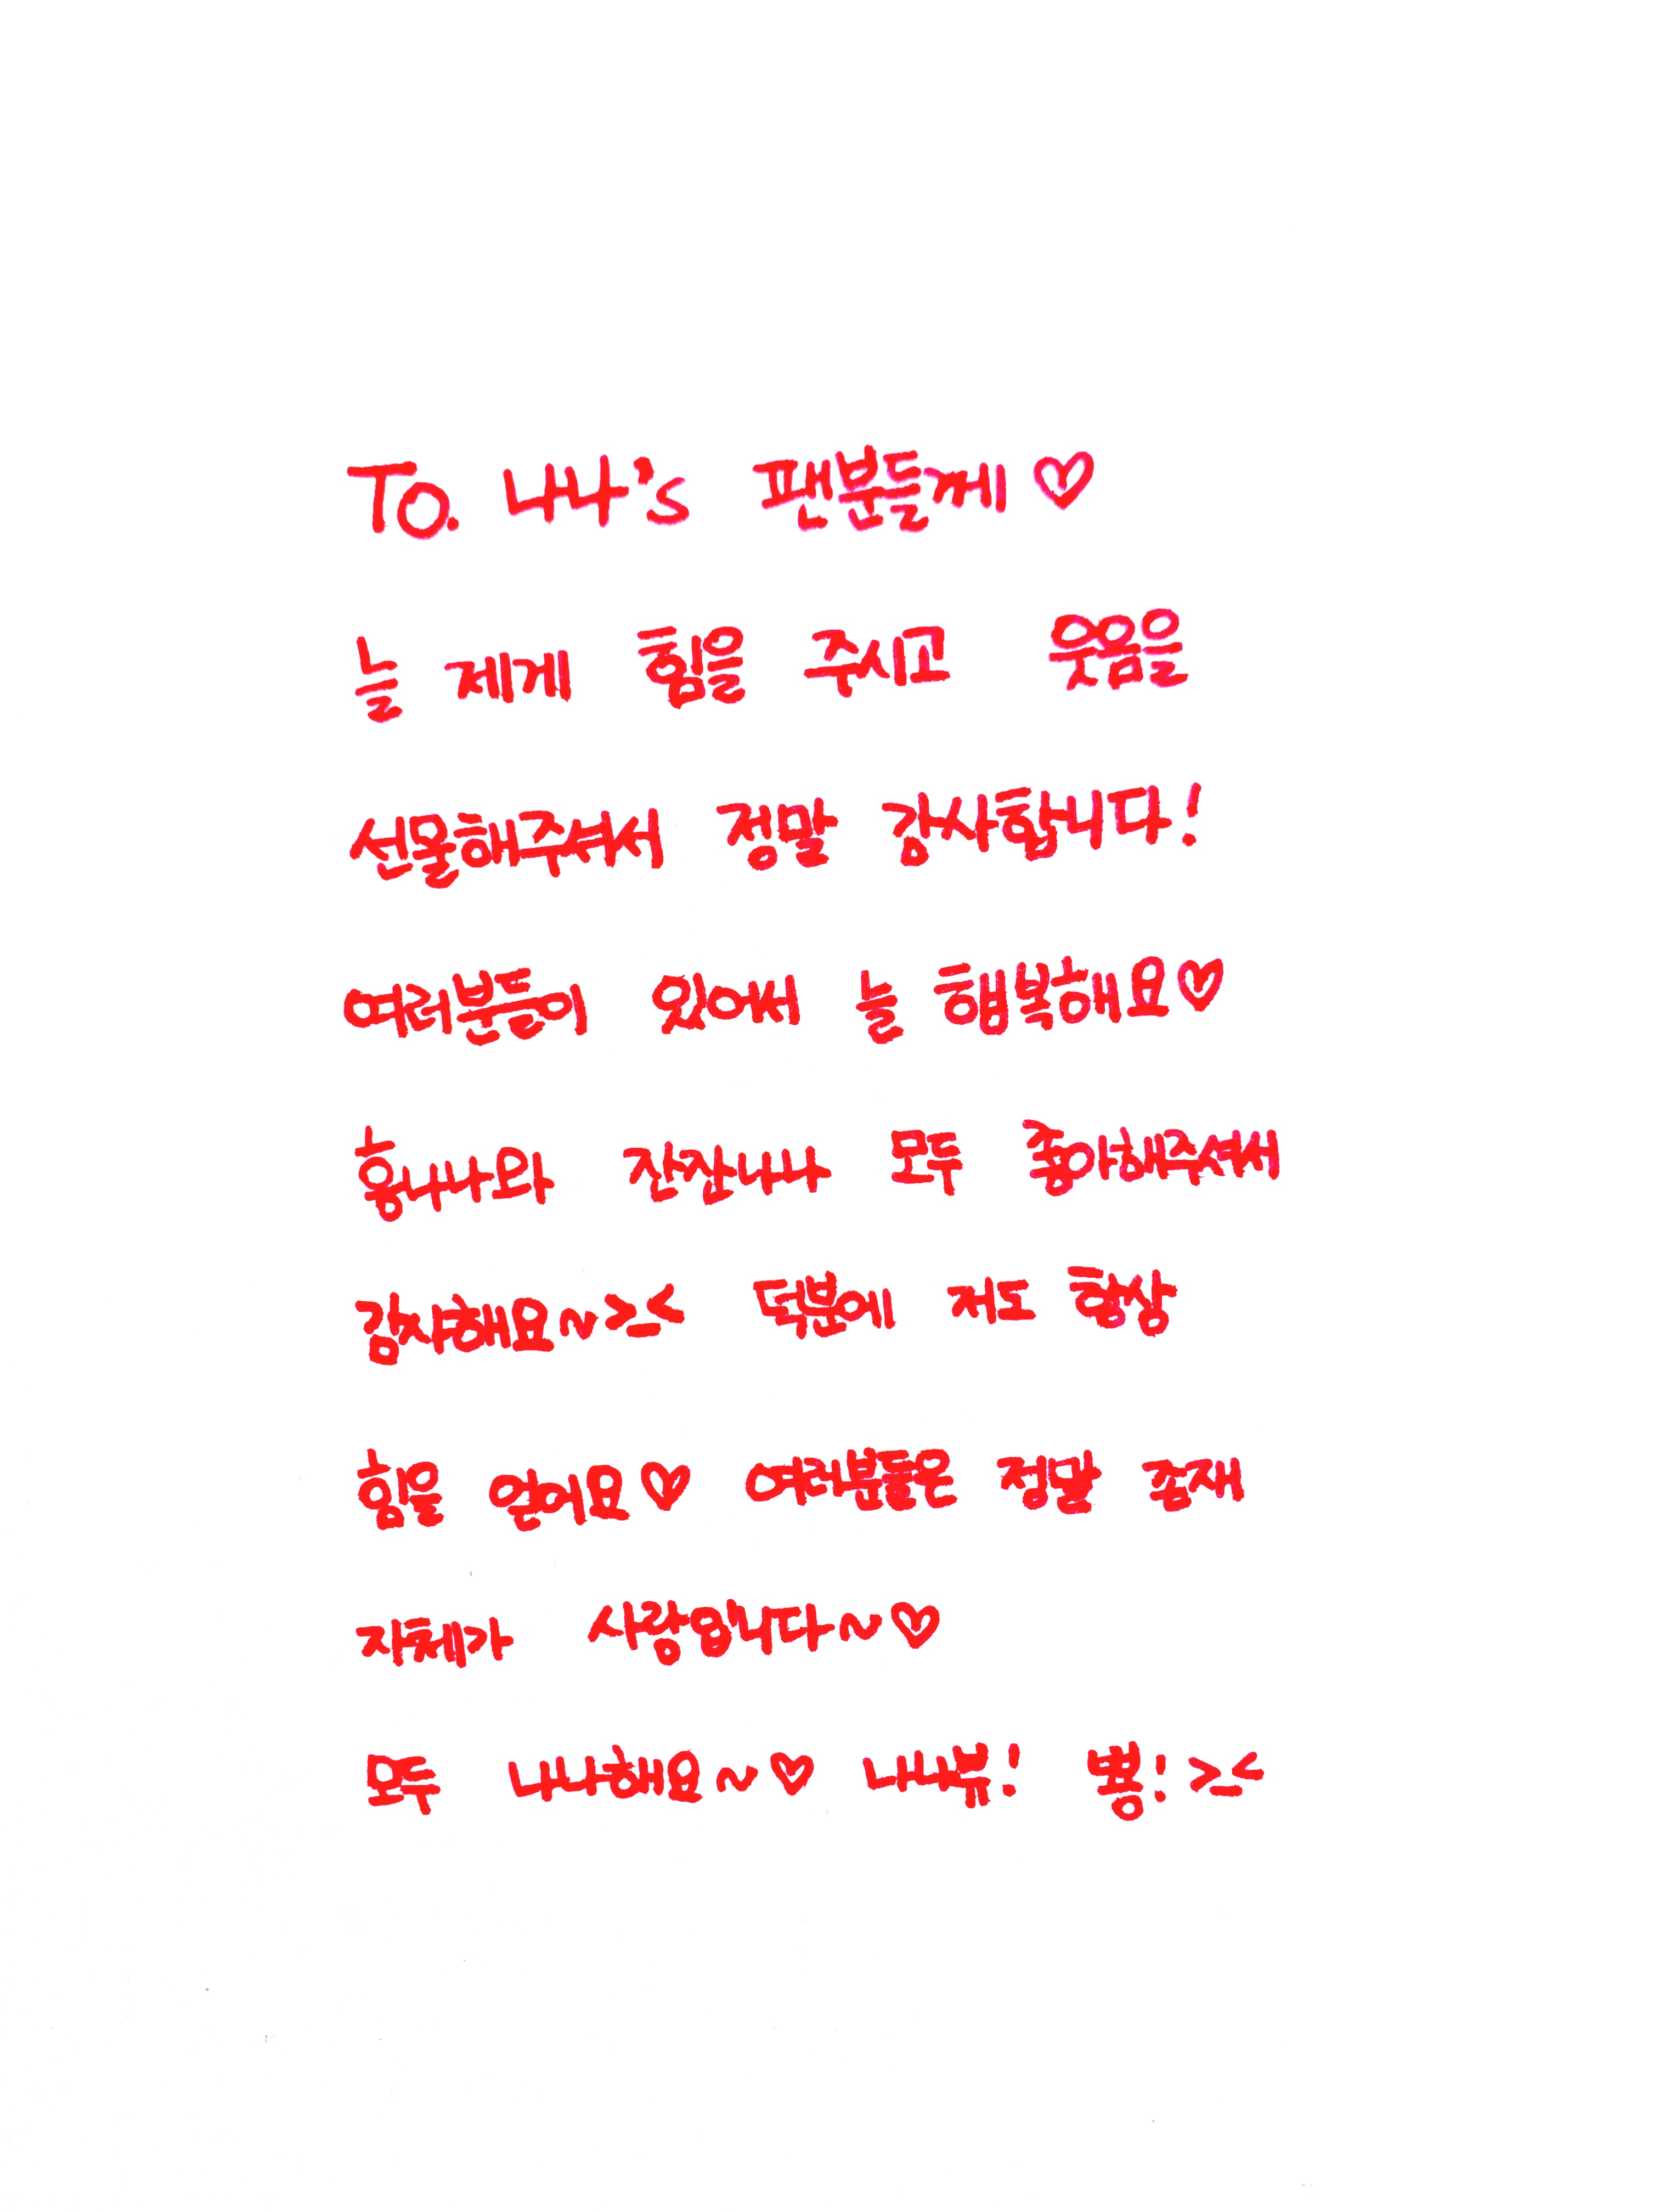 To. 나나's 팬분들께♡
늘 제게 힘을 주시고 웃음을
선물해주셔서 정말 감사합니다!
여러분들이 있어서 늘 행복해요♡
흥나나와 잔잔나나 모두 좋아해주셔서
감사해요~>_< 덕분에 저도 항상
힘을 얻어요♡ 여러분들은 정말 존재
자체가 사랑입니다~♡
모두 나나해요~♡ 나나뷰! 뿅! >_<